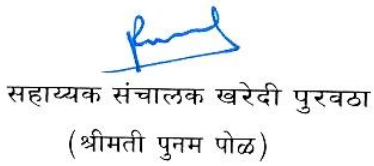 सहाय्यक संचालक खरेदी पुरवठा
(श्रीमती पुनम पोळ)